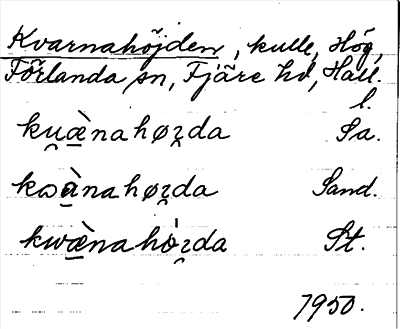 Kvarnahöjden, kulle, Hög,
Förlanda sn, Fjäre hd, Hall.
l.
ku̯æ̀nahøʐda Sa.
kωàna høʐda Sand.
kwæ̀nahò̤ʐda St.
1950.